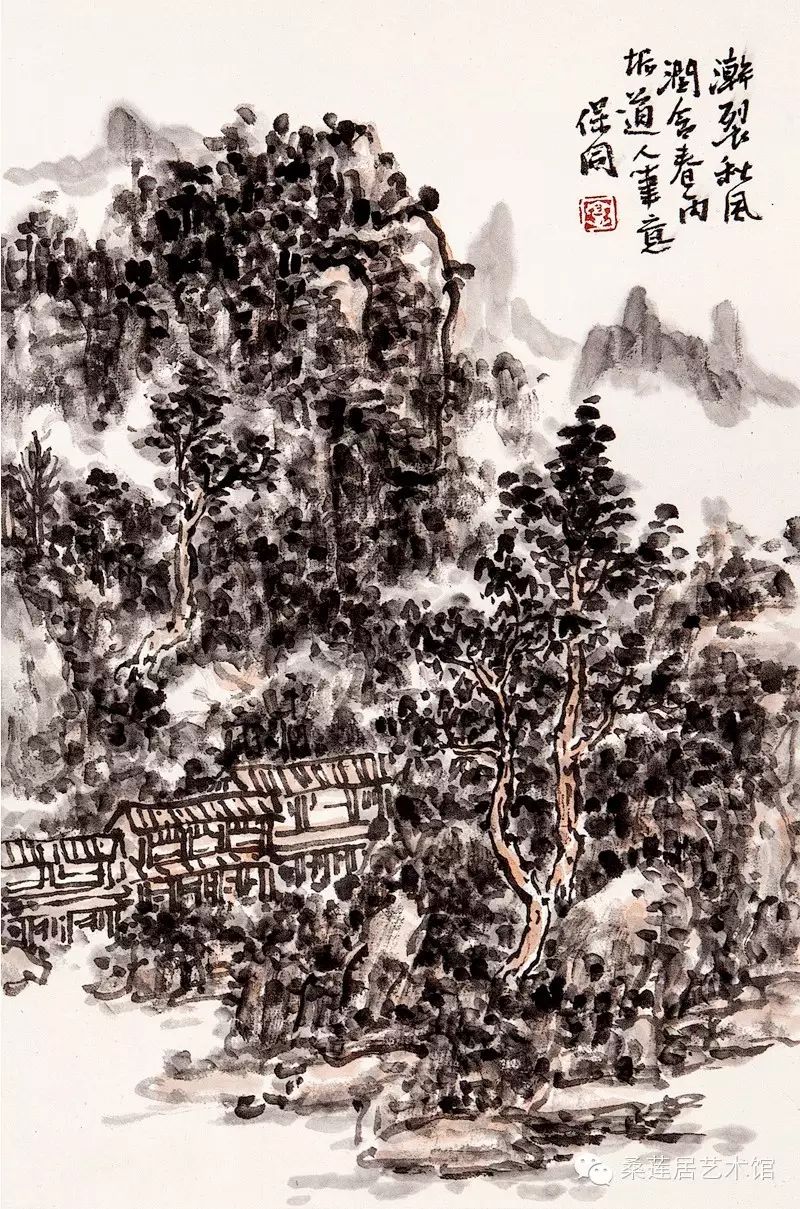 澣裂秋風
潤含春雨
垢道人筆意
保同
桑莲居艺术馆